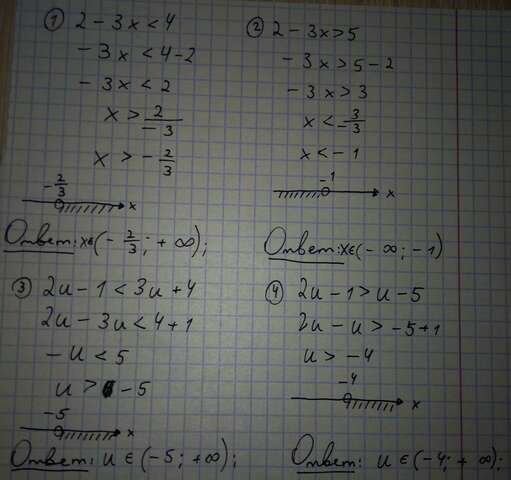 ① 2 - 3x < 4
- 3x < 4 - 2
- 3x < 2
x > 2/-3
x > - 2/3
- 2/3
x
Ответ: x∈(- 2/3; + ∞);
② 2 - 3x > 5
- 3x > 5 - 2
- 3x > 3
x < 3/-3
x < - 1
-1
x
Ответ: x∈(- ∞; - 1)
③ 2u - 1 < 3u + 4
2u - 3u < 4 + 1
- u < 5
u > - 5
-5
x
Ответ: u ∈ (- 5; +∞);
④ 2u - 1 > u - 5
2u - u > -5+1
u > - 4
-4
x
Ответ: u ∈ (-4; + ∞);